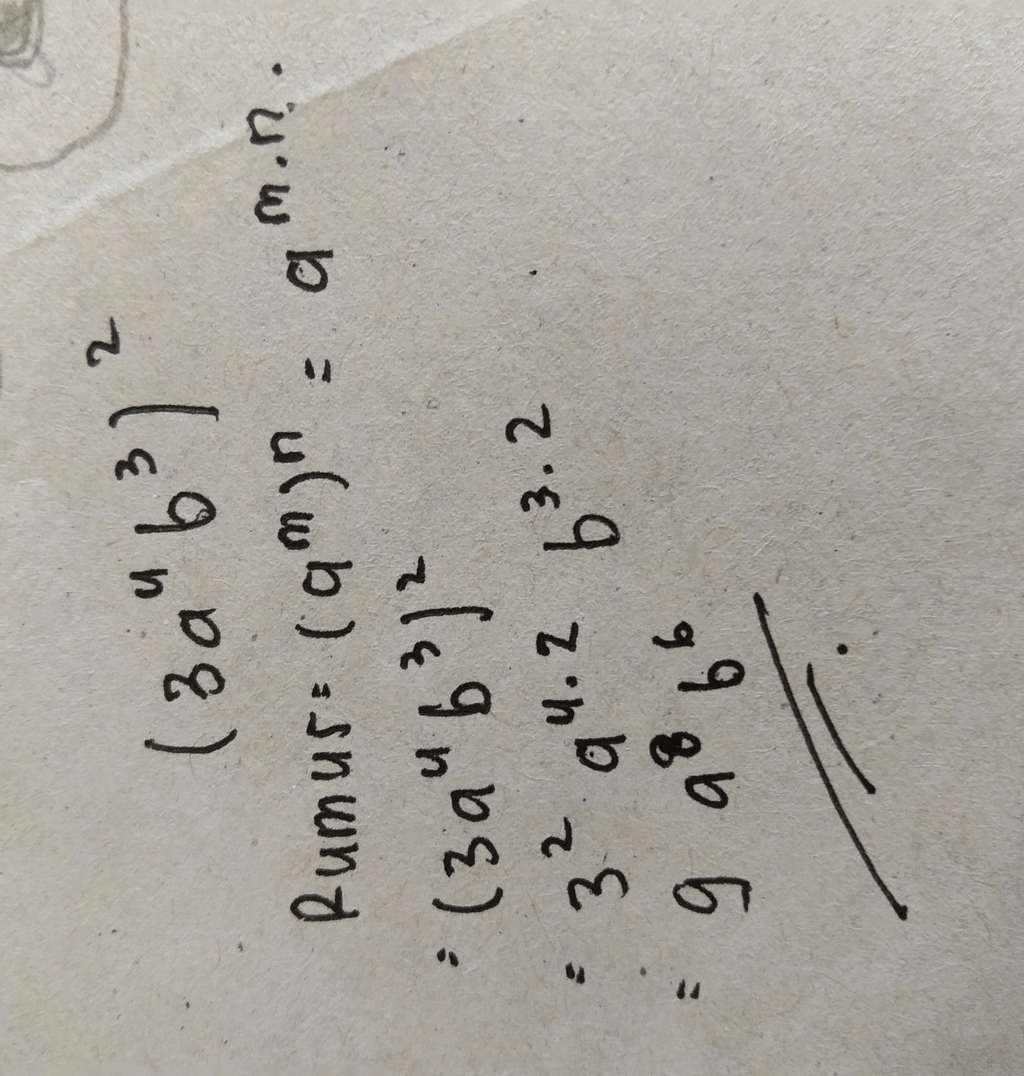 (3a⁴b³)²
Rumus= (aᵐ)ⁿ = aᵐ·ⁿ.
= (3a⁴b³)²
= 3² a⁴·² b³·²
= 9 a⁸ b⁶